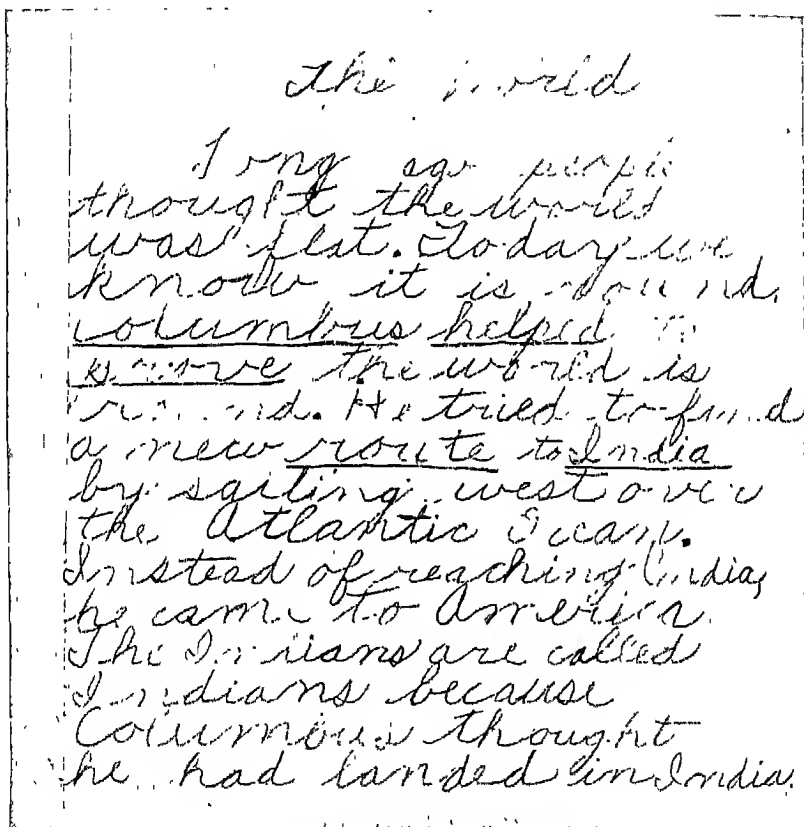 The World
Long ago people
thought the world
was flat. Today we
know it is round.
Columbus helped to
prove the world is
round. He tried to find
a new route to India
by sailing west over
the Atlantic Ocean.
Instead of reaching India,
he came to America.
The Indians are called
Indians because
Columbus thought
he had landed in India.